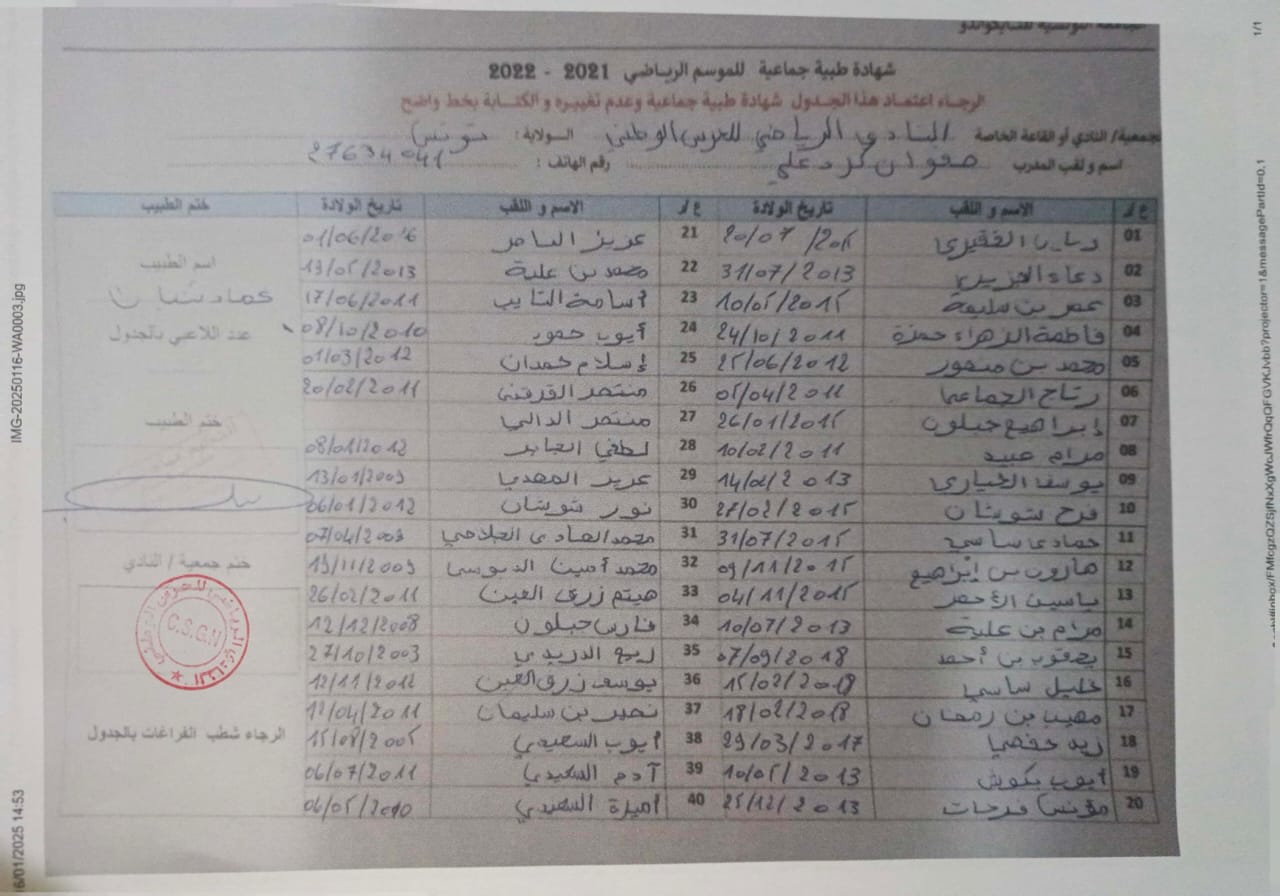 الجامعة التونسية للتايكواندو
شهادة طبية جماعية للموسم الرياضي 2021 - 2022
الرجاء اعتماد هذا الجدول شهادة طبية جماعية وعدم تغييره و الكتابة بخط واضح
جمعية/ النادي أو القاعة الخاصة النادي الرياضي للحرس الوطني الولاية: تونس
اسم و لقب المدرب صفوان كرد علي رقم الهاتف: 27634041
ع/ر الاسم و اللقب تاريخ الولادة ع/ر الاسم و اللقب تاريخ الولادة ختم الطبيب
01 21 عزيز 01/06/2016
02 دعاء 31/07/2013 22 محمد بن علية 19/05/2013
اسم الطبيب
03 عمر بن سليمة 10/05/2015 23 أسامة التايب 17/06/2011
عماد شبان
04 فاطمة الزهراء حمزة 24/10/2011 24 أيوب حمود 08/10/2010
عدد اللاعبي بالجدول
05 محمد بن منصور 25/06/2012 25 إسلام حمدان 01/03/2012
06 رتاج 05/04/2011 26 منتصر 20/02/2011
07 إبراهيم جبلون 26/01/2015 27 منتصر الدالي
ختم الطبيب
08 مرام عبيد 10/02/2011 28 لطفي العابد 08/01/2012
09 يوسف الخياري 14/02/2013 29 عزيز المهدي 13/01/2009
10 فرح شوشان 27/02/2015 30 نور شوشان 06/01/2012
11 حمادي ساسي 31/07/2015 31 محمد الهادي 07/04/2009
12 هارون بن إبراهيم 09/11/2015 32 محمد أمين 19/11/2009
ختم جمعية / النادي
13 ياسين الأحمر 04/11/2015 33 هيثم زرق العين 26/02/2011
14 مرام بن علية 10/07/2013 34 فارس جبلون 12/12/2008
C.S.G.N
15 يعقوب بن أحمد 07/09/2018 35 ربيع الدريدي 27/10/2003
16 خليل ساسي 36 يوسف زرق العين 12/11/2012
17 مهيب بن رمضان 18/02/2018 37 نصير بن سليمان
18 زيد حفصي 29/03/2017 38 أيوب السعيدي 15/08/2005
الرجاء شطب الفراغات بالجدول
19 أيوب بكوش 10/05/2013 39 آدم السعيدي 06/07/2011
20 مؤنس فرحات 25/12/2013 40 أميرة السعيدي 04/05/2010
IMG-20250116-WA0003.jpg
16/01/2025 14:53
1/1